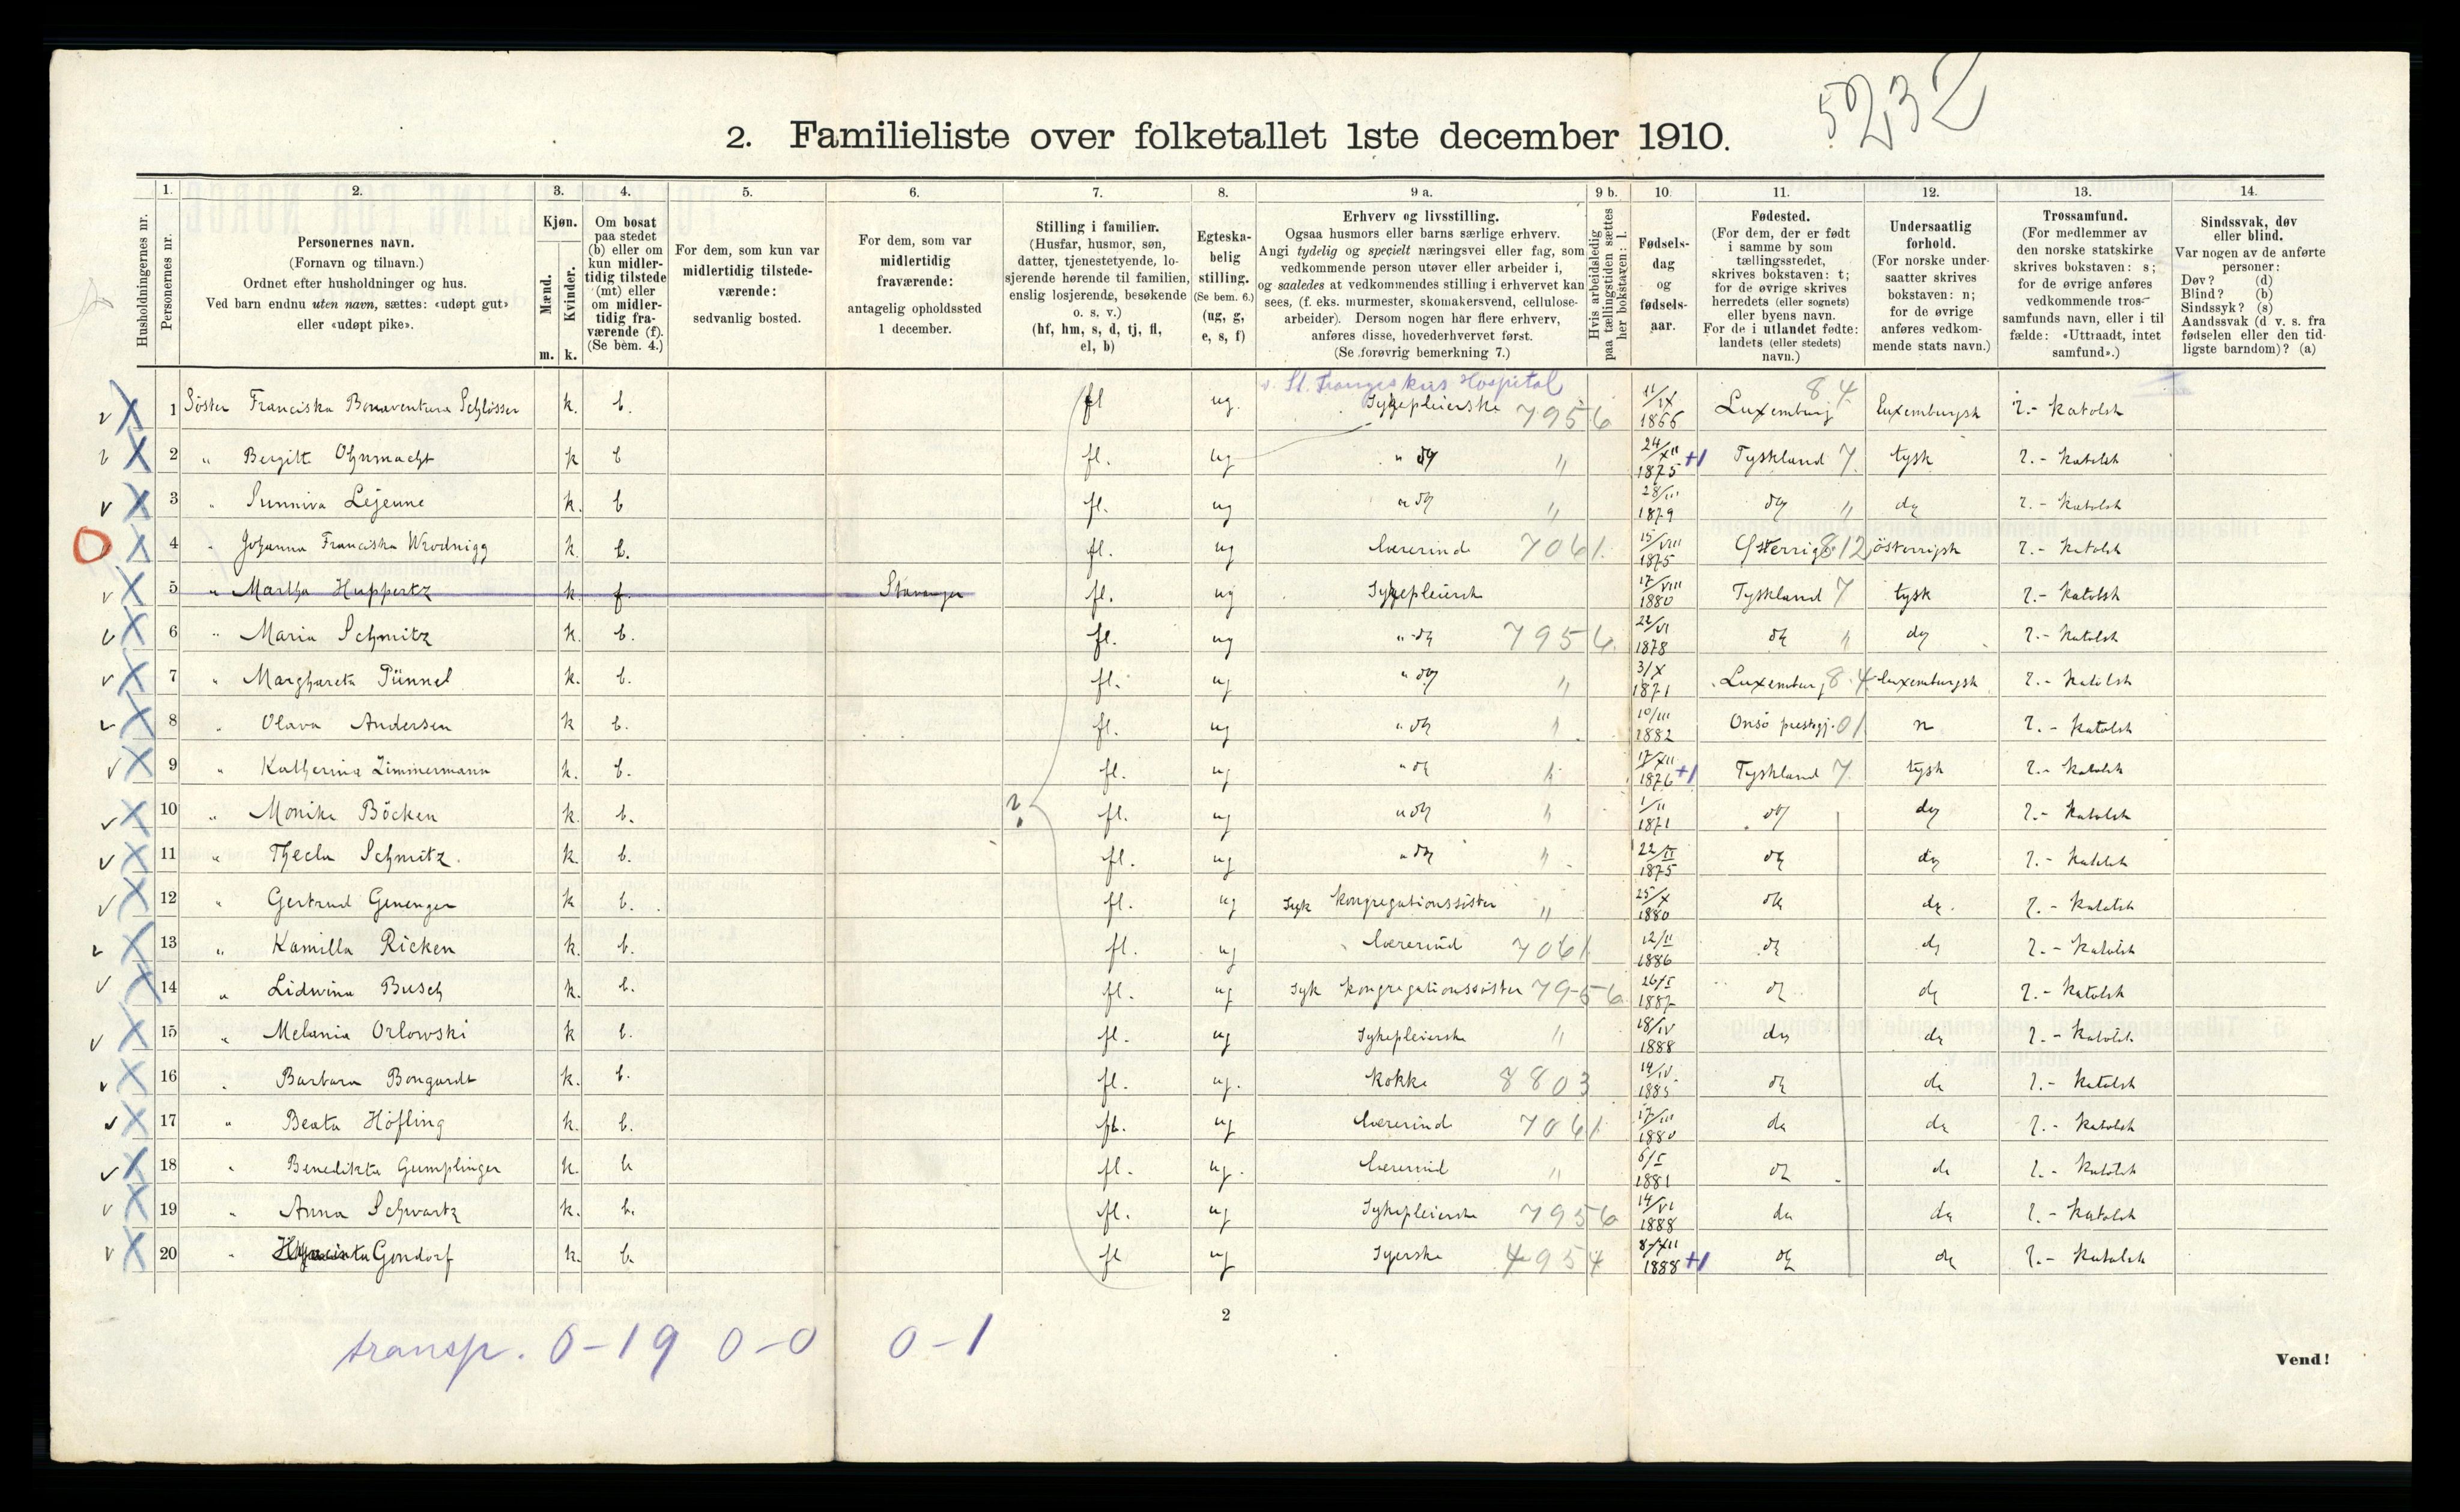 5232
2. Familieliste over folketallet 1ste december 1910.
1. 2. 3. 4. 5. 6. 7. 8. 9 a. 9 b. 10. 11. 12. 13. 14.
Husholdningernes nr.
Personernes nr.
Personernes navn.
(Fornavn og tilnavn.)
Ordnet efter husholdninger og hus.
Ved barn endnu uten navn, sættes: «udøpt gut»
eller «udøpt pike».
Kjøn.
Mænd.
Kvinder.
m. k.
Om bosat
paa stedet
(b) eller om
kun midler-
tidig tilstede
(mt) eller
om midler-
tidig fra-
værende (f).
(Se bem. 4.)
For dem, som kun var
midlertidig tilstede-
værende:
sedvanlig bosted.
For dem, som var
midlertidig
fraværende:
antagelig opholdssted
1 december.
Stilling i familien.
(Husfar, husmor, søn,
datter, tjenestetyende, lo-
sjerende hørende til familien,
enslig losjerende, besøkende
o. s. v.)
(hf, hm, s, d, tj, fl,
el, b)
Egteska-
belig
stilling.
(Se bem. 6.)
(ug, g,
e, s, f)
Erhverv og livsstilling.
Ogsaa husmors eller barns særlige erhverv.
Angi tydelig og specielt næringsvei eller fag, som
vedkommende person utøver eller arbeider i,
og saaledes at vedkommendes stilling i erhvervet kan
sees, (f. eks. murmester, skomakersvend, cellulose-
arbeider). Dersom nogen har flere erhverv,
anføres disse, hovederhvervet først.
(Se forøvrig bemerkning 7.)
Hvis arbeidsledig
paa tællingstiden sættes
her bokstaven: l.
Fødsels-
dag
og
fødsels-
aar.
Fødested.
(For dem, der er født
i samme by som
tællingsstedet,
skrives bokstaven: t;
for de øvrige skrives
herredets (eller sognets)
eller byens navn.
For de i utlandet fødte:
landets (eller stedets)
navn.)
Undersaatlig
forhold.
(For norske under-
saatter skrives
bokstaven: n;
for de øvrige
anføres vedkom-
mende stats navn.)
Trossamfund.
(For medlemmer av
den norske statskirke
skrives bokstaven: s;
for de øvrige anføres
vedkommende tros-
samfunds navn, eller i til
fælde: «Uttraadt, intet
samfund».)
Sindssvak, døv
eller blind.
Var nogen av de anførte
personer:
Døv? (d)
Blind? (b)
Sindssyk? (s)
Aandssvak (d. v. s. fra
fødselen eller den tid-
ligste barndom)? (a)
v. St. Franziskus Hospital
1 Söster Franciska Bonaventura Schlösser k. b. fl ug. Sykepleierske 7956 11/IX 1866 Luxemburg 84 Luxemburgsk r.- katolsk
2 " Bergitt Ohnmacht k b fl. ug " do " 24/XII 1875 +1 Tyskland 7. tysk r.- katolsk
3 " Sunniva Lejeune k. b fl. ug " do " 28/III 1879 do " do r.- katolsk
4 " Johanna Franciska Wrodnigg k. b. fl. ug lærerinde 7061. 15/VIII 1875 Østerrig 812 österrigsk r.- katolsk
5 " Martha Huppertz k f. Stavanger fl. ug Sykepleiersk 17/VIII 1880 Tyskland 7 tysk r.- katolsk
6 " Maria Schmitz k. b. fl. ug " do 7956. 22/VI 1878 do " do r.- katolsk
7 " Marghareta Pünnel k. b. fl. ug " do " 3/X 1871 Luxemburg 8.4 luxemburgsk r.- katolsk
8 " Olava Andersen k b. fl. ug " do " 10/III 1882 Onsö prestgj. 01 n r.- katolsk
9 " Katherina Zimmermann k. b. fl. ug " do " 17/XII 1876 +1 Tyskland 7. tysk r.- katolsk
10 " Monika Böcken k. b. ? fl. ug " do " 1/II 1871 do do r.- katolsk
11 " Thecla Schmitz. k. b. fl. ug " do " 22/II 1875 do do r.- katolsk
12 " Gertrud Genenger k b. fl. ug Syk kongregationssöster " 25/X 1880 do do. r.- katolsk
13 " Kamilla Ricken k. b. fl. ug lærerind 7061 12/II 1886 do do r.- katolsk
14 " Lidwina Busch k. b. fl. ug Syk kongregationssöster 7956 26/I 1887 do do r.- katolsk
15 " Melania Orlowski k b. fl. ug Sykepleierske " 18/IV 1888 do do r.- katolsk
16 " Barbara Bongardt k. b. fl. ug. kokke 8803 14/IV 1885 do do r.- katolsk
17 " Beata Höfling k. b. fl. ug lærerind 7061 17/III 1880 do do r.- katolsk
18 " Benedikta Gumplinger k. b fl. ug. lærerind " 6/I 1881 do do r.- katolsk
19 " Anna Schwartz k. b. fl. ug Sykepleierske 7956 14/VI 1888 do do r.- katolsk
20 " Hyacinta Gondorf k. b. fl ug Syerske 4954 8/XII 1888 +1 do do r.- katolsk
2
transp. 0-19 0-0 0-1
Vend!